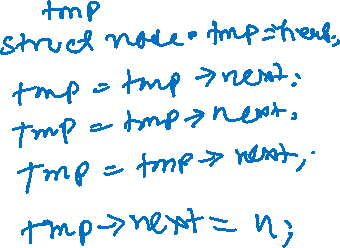 tmp
struct node * tmp = head;
tmp = tmp → next;
tmp = tmp → next;
tmp = tmp → next;
tmp → next = n;